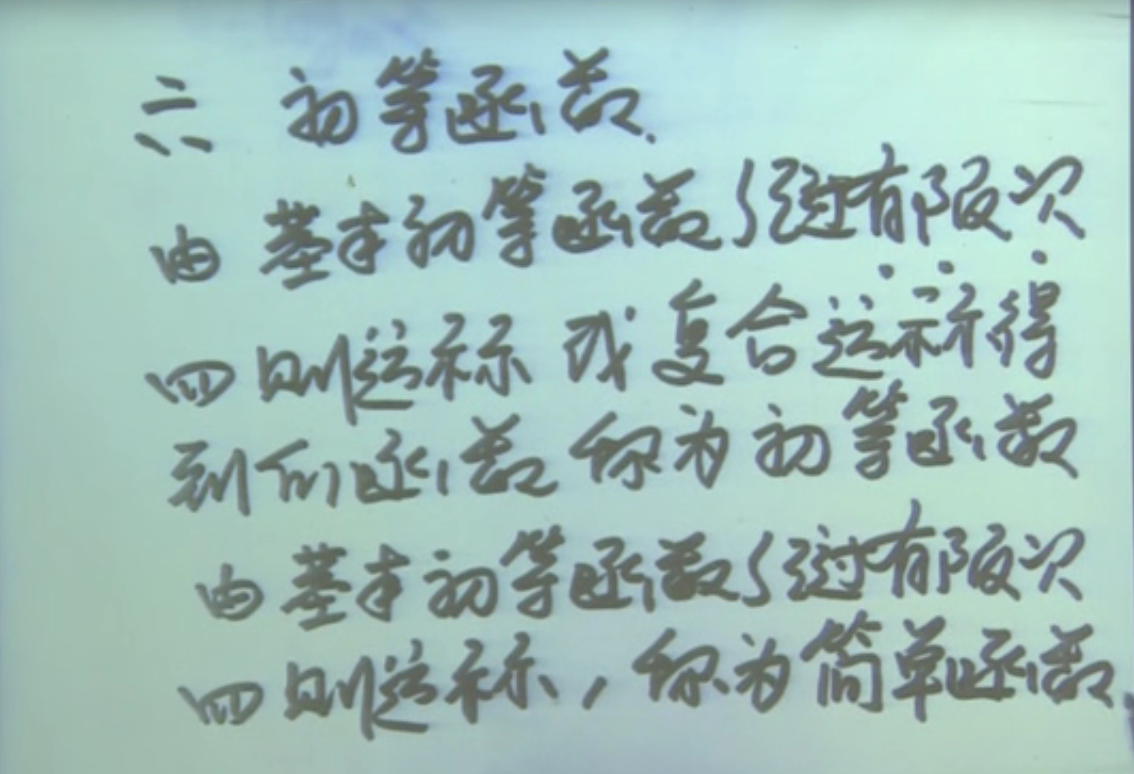 六 初等函数.
由基本初等函数经过有限次
四则运祘或复合运祘得
到的函数称为初等函数
由基本初等函数经过有限次
四则运祘,称为简单函数.